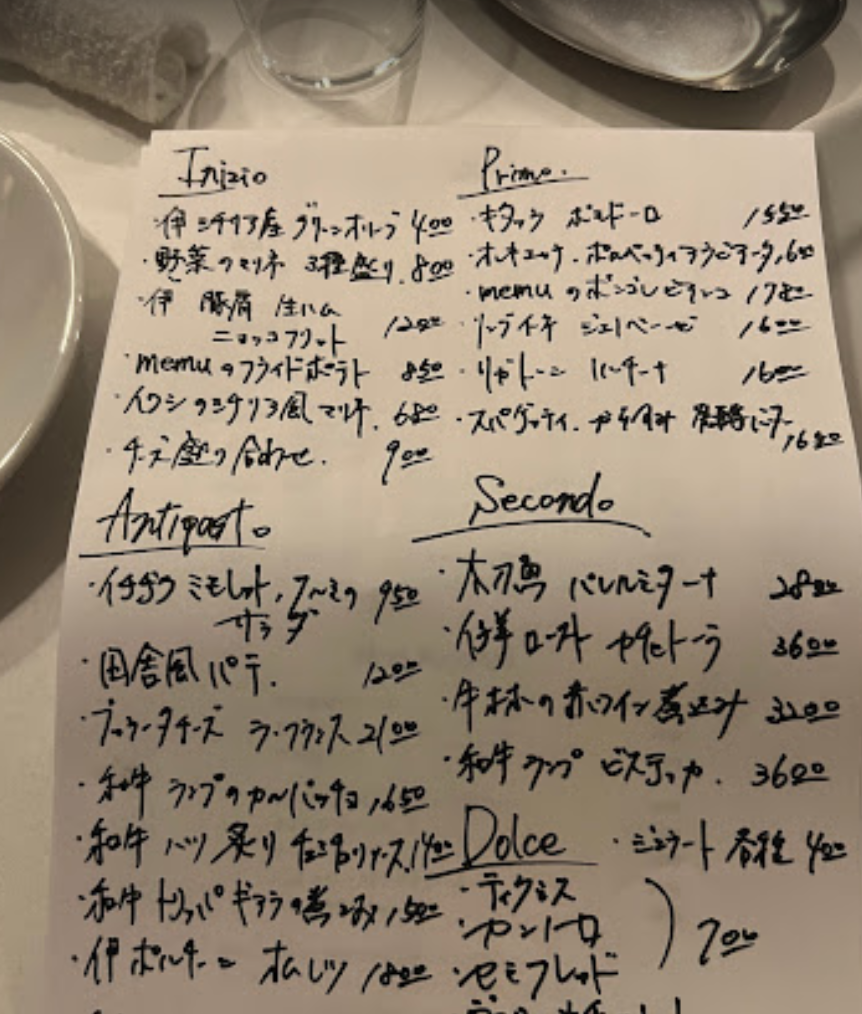 Inizio
・伊 シチリア産 グリーンオリーブ 400
・野菜のマリネ 3種盛り. 800
・伊 豚肩 生ハム
ニョッコフリット 1200
・memuのフライドポテト 850
・イワシのシチリア風マリネ. 680
・チーズ盛り合わせ. 900
Antipasto
・イチジク ミモレット, の 950
サラダ
・田舎風パテ. 1200
・ブッラータチーズ ラ・フランス 2100
・和牛 ランプのカルパッチョ 1650
・和牛 ハツ 炙り 1400
・和牛 トリッパ ギアラの煮込み 1500
・伊 ポルチーニ オムレツ 1800
Primo.
・キタッラ ポモドーロ 1550
・オレキエッテ. アラビアータ 1600
・memuのボンゴレビアンコ 1780
・リングイネ ジェノベーゼ 1600
・リガトーニ 1600
・スパゲッティ. カラスミ 発酵バター
1680
Secondo
・太刀魚 パレルミターナ 2800
・仔羊 ロースト カチャトーラ 3600
・牛ホホの赤ワイン煮込み 3200
・和牛 ランプ ビステッカ. 3600
Dolce ・ジェラート 各種 400
・ティラミス
・カンノーロ 700
・セミフレッド